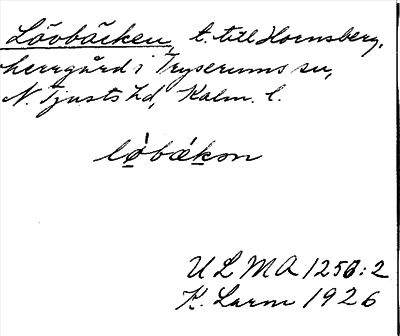 Lövbäcken, t. till Hornsberg,
herrgård i Tryserums sn,
N. Tjusts hd, Kalm. l.
lø̀bækon
ULMA 1256:2
K. Larm 1926